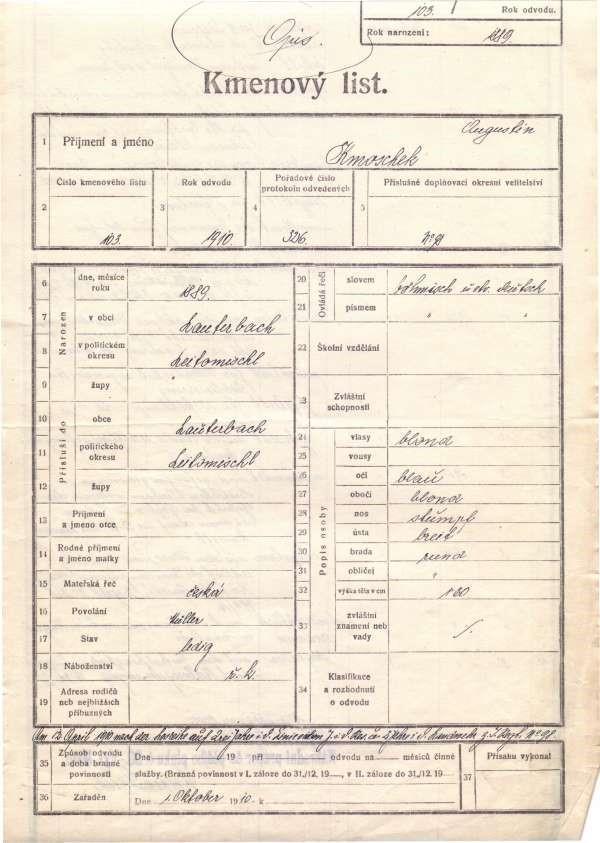 103. Rok odvodu.
Rok narození: 1889.
Opis.
Kmenový list.
1 Příjmení a jméno Augustin
Kmoschek
Číslo kmenového listu Rok odvodu Pořadové číslo protokolu odvedených Příslušné doplňovací okresní velitelství
2 103. 3 1910. 4 326. 5 Nº 98
Narozen
6 dne, měsíce roku 1889.
7 v obci Lauterbach
8 v politickém okresu Leitomischl
9 župy
Přísluší do
10 obce Lauterbach
11 politického okresu Leitomischl
12 župy
13 Příjmení a jméno otce
14 Rodné příjmení a jméno matky
15 Mateřská řeč česká
16 Povolání Müller
17 Stav ledig
18 Náboženství ř. k.
19 Adresa rodičů neb nejbližších příbuzných
Ovládá řeči
20 slovem böhmisch u. etw. deutsch
21 písmem " "
22 Školní vzdělání
23 Zvláštní schopnosti
Popis osoby
24 vlasy blond
25 vousy
26 oči blau
27 obočí blond
28 nos stumpf
29 ústa breit
30 brada rund
31 obličej "
32 výška těla v cm 160
33 zvláštní znamení neb vady ./.
34 Klasifikace a rozhodnutí o odvodu
April 1910 nach der auf Jahre i. d. Jahre i. d. Nº 98
35 Způsob odvodu a doba branné povinnosti Dne 19 při odvodu na měsíců činné
služby. (Branná povinnost v I. záloze do 31./12. 19....., v II. záloze do 31./12. 19.....
36 Zařaděn Dne 1. Oktober 1910. k
37 Přísahu vykonal